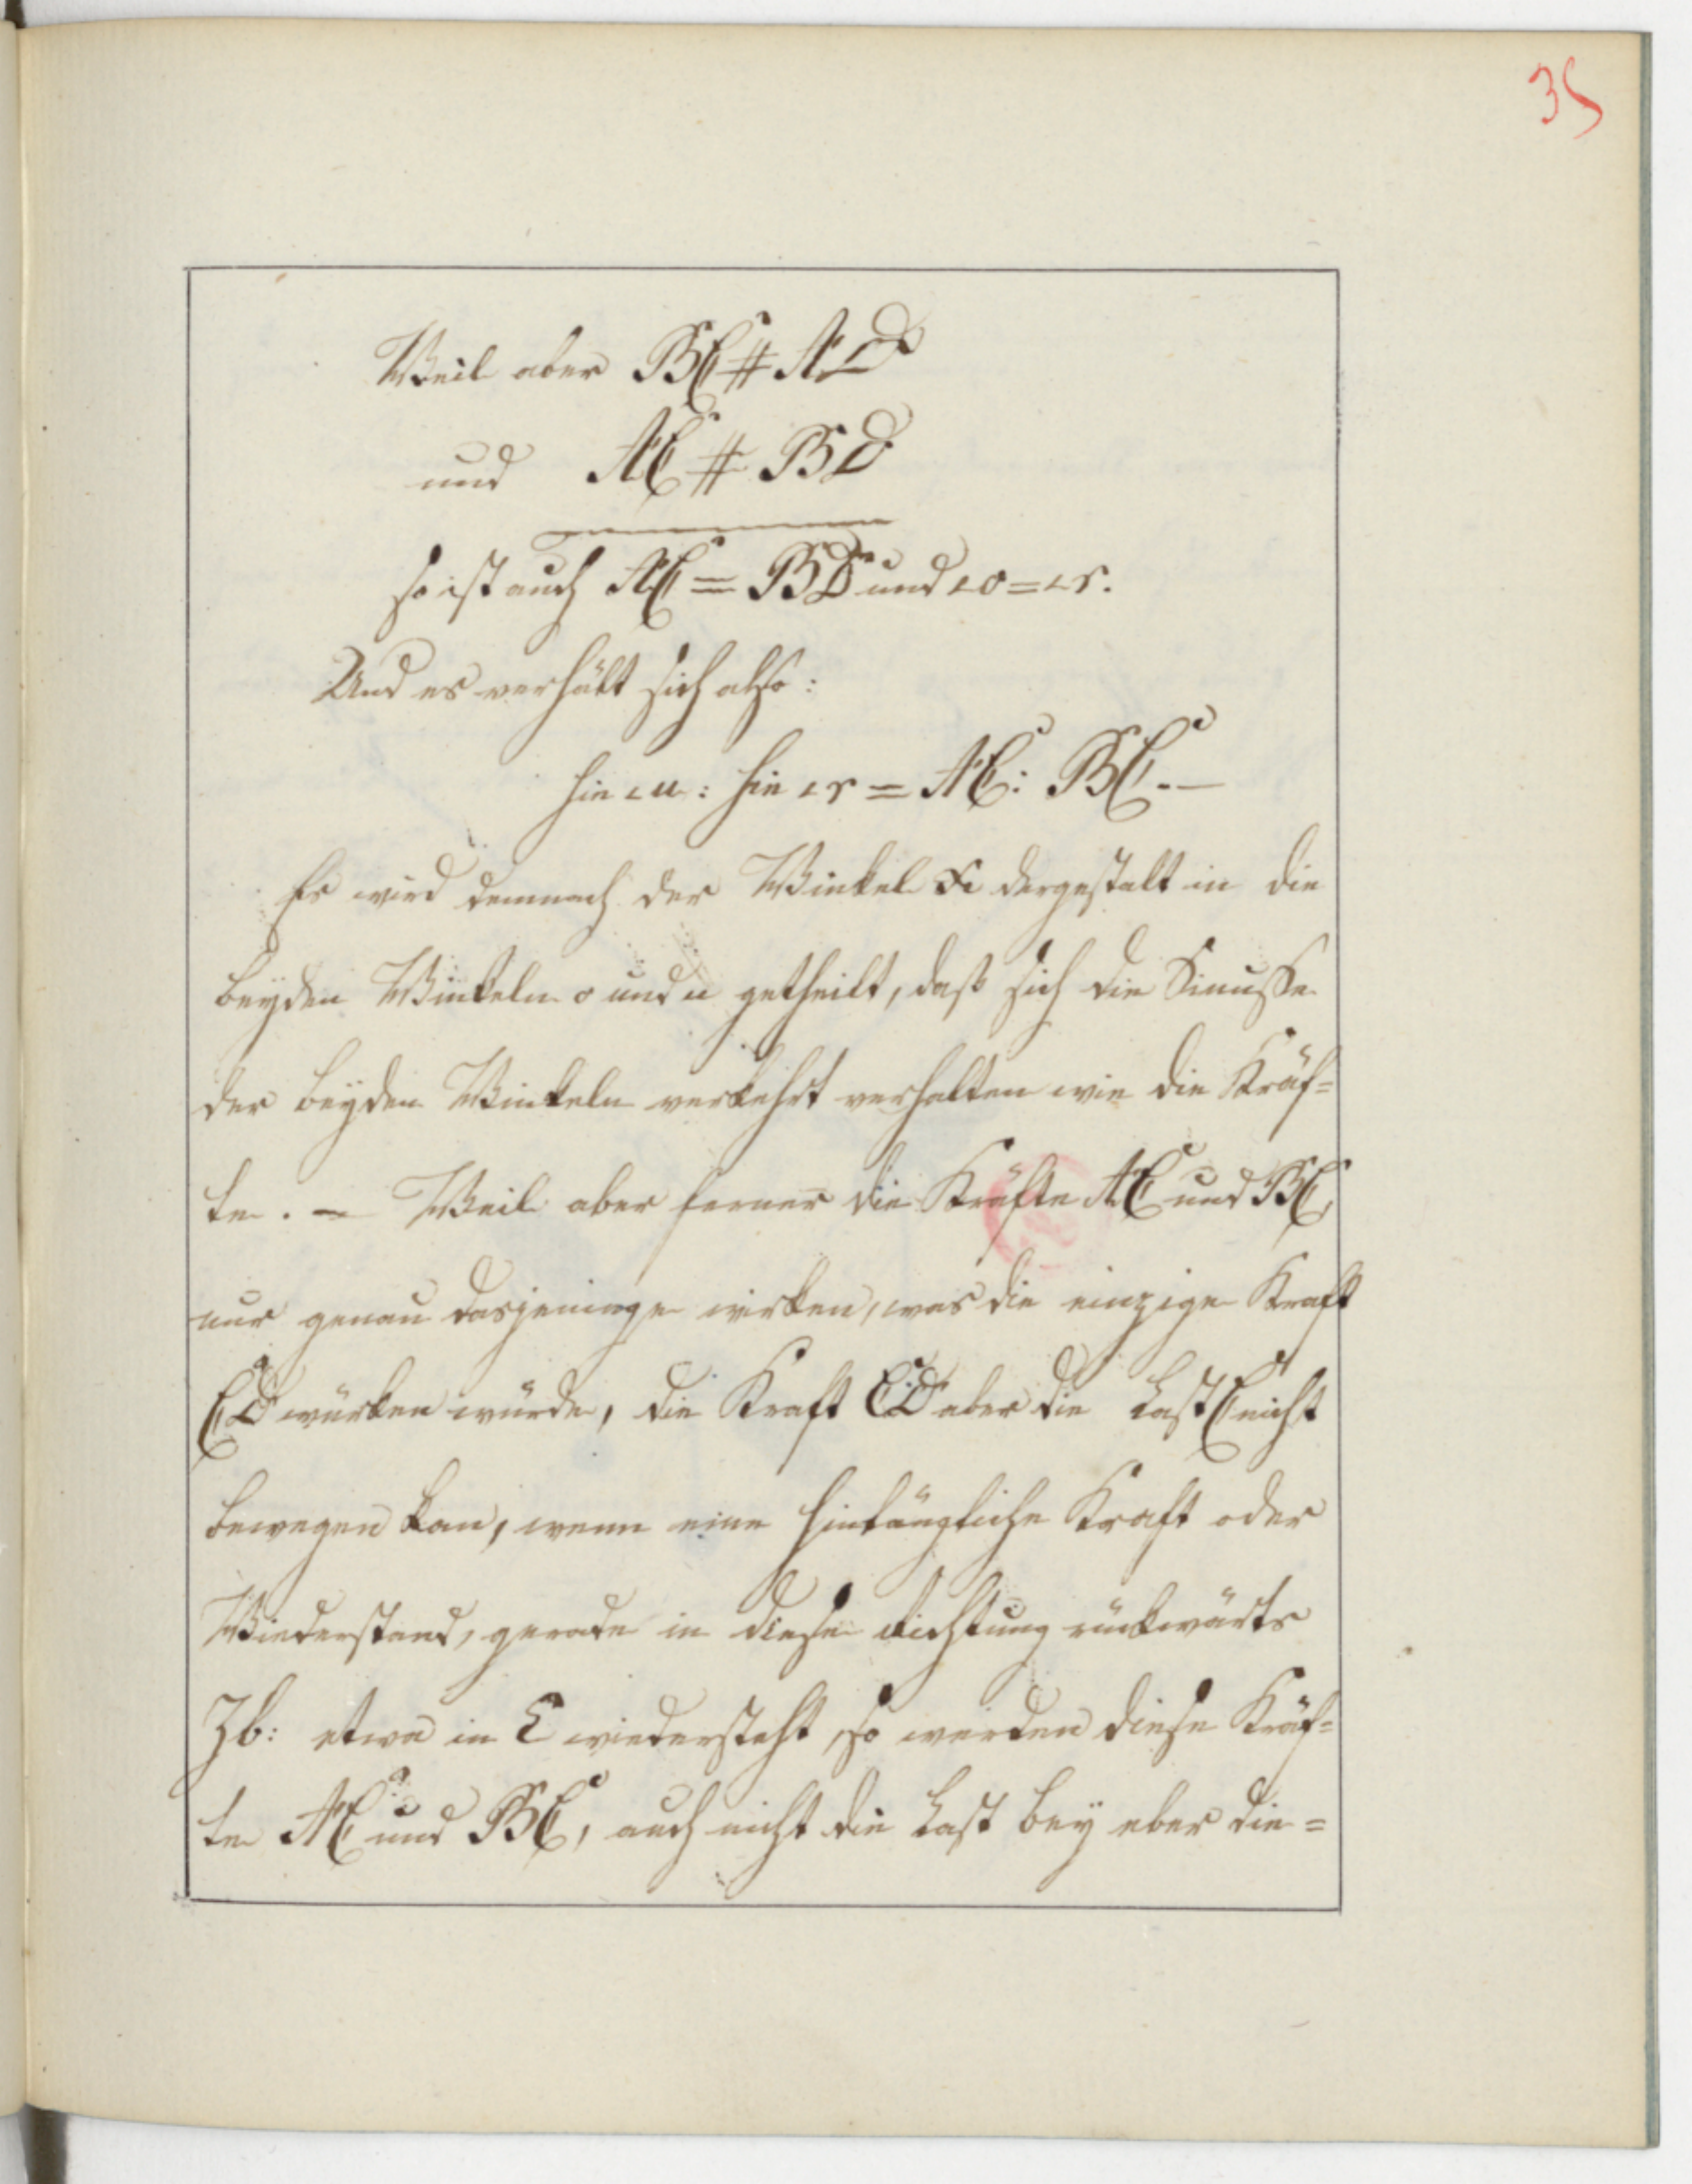 35
Weil aber BC # AD
und AC # BD
so ist auch AC = BD und ∠o = ∠r.
Und es verhält sich also:
sin ∠u : sin ∠r = AC : BC. —
Es wird demnach der Winkel x dergestalt in die
beyden Winkeln o und u getheilt, daß sich die Sinusse
der beyden Winkeln verkehrt verhalten wie die Kräf=
te. — Weil aber ferner die Kräfte AC und BC,
nur genau dasjeninge wirken, was die einzige Kraft
CD würken würde, die Kraft CD aber die Last C nicht
bewegen kan, wenn eine hinlängliche Kraft oder
Wiederstand, gerade in diese Richtung rückwärts
Zb: etwa in E wiedersteht, so werden diese Kräf=
te AC und BC, auch nicht die Last bey eber die=